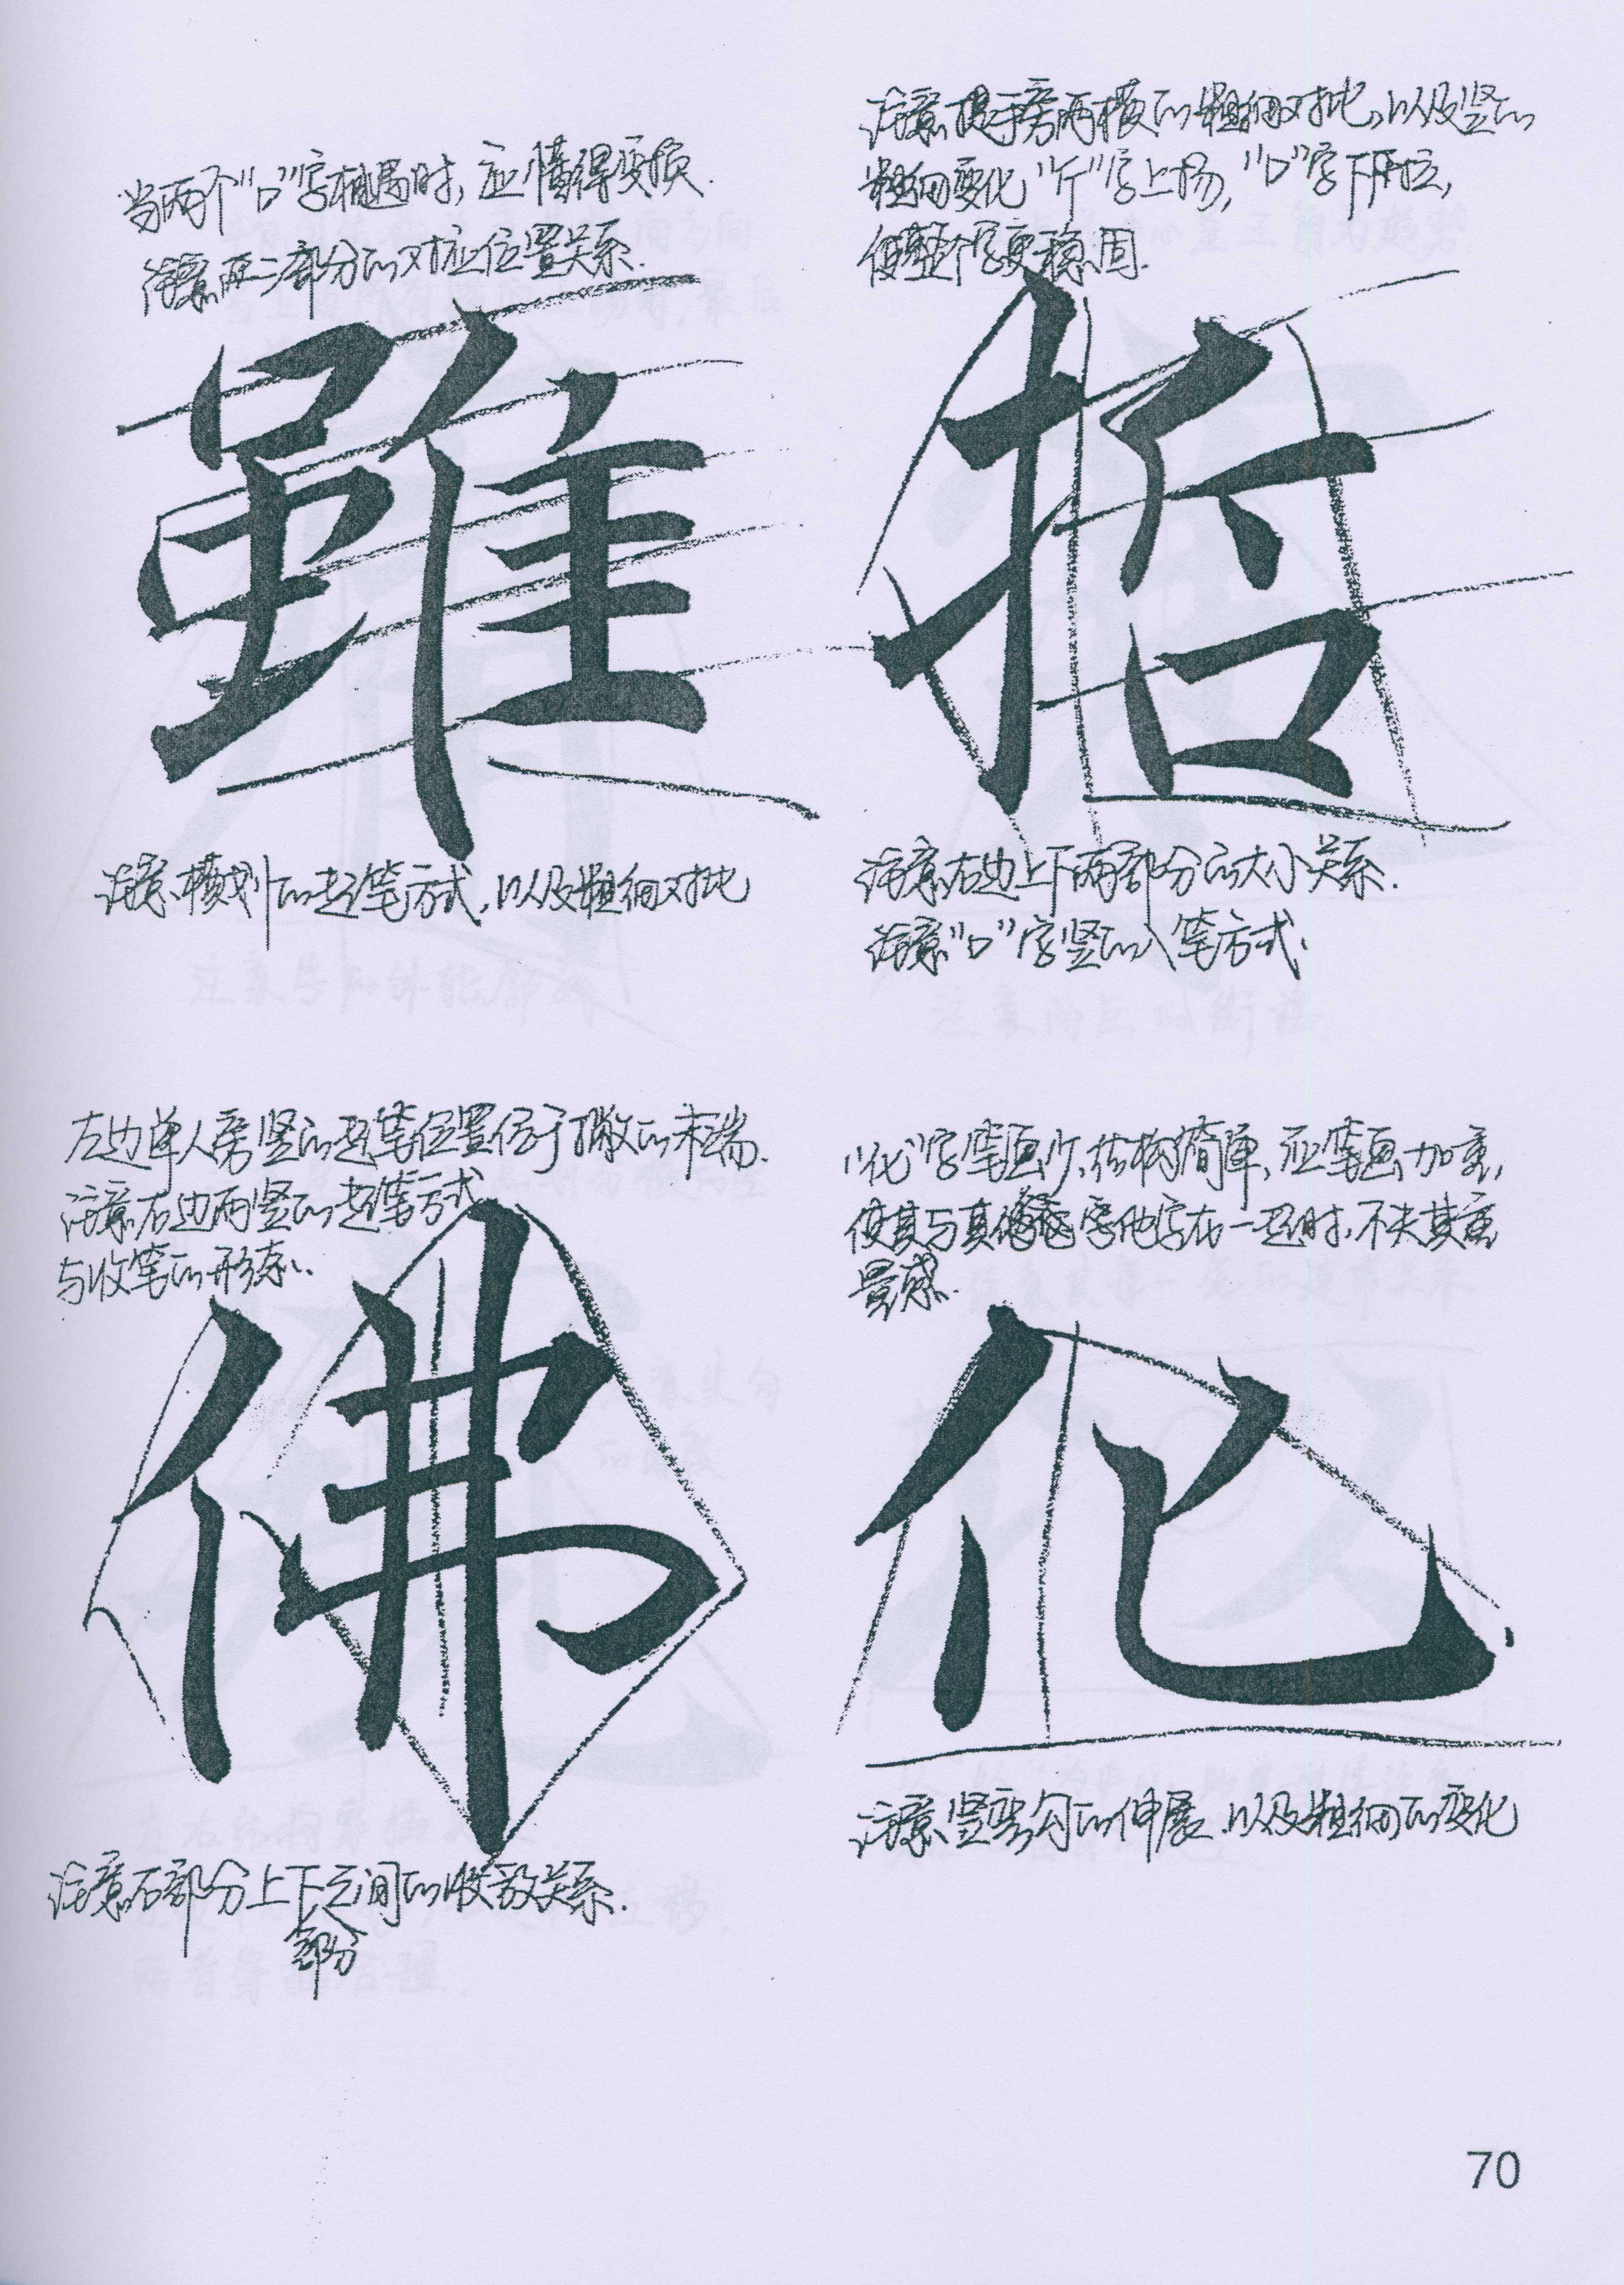 当两个“口”字相遇时,应懂得变换.
注意两二部分的对应位置关系.
雖
注意横划的起笔方式,以及粗细对比
注意提手旁两横的粗细对比,以及竖的
粗细变化“斤”字上扬,“口”字下压,
使整个字更稳固.
哲
注意右边上下两部分的大小关系.
注意“口”字竖的入笔方式.
左边单人旁竖的起笔位置位于撇的末端.
注意右边两竖的起笔方式
与收笔的形态.
佛
注意右部分上下之间的收放关系.
部分
“化”字笔画少,结构简单,应笔画加重,
使其与其他字在一起时,不失其重
量感.
化
注意竖弯勾的伸展,以及粗细的变化
70